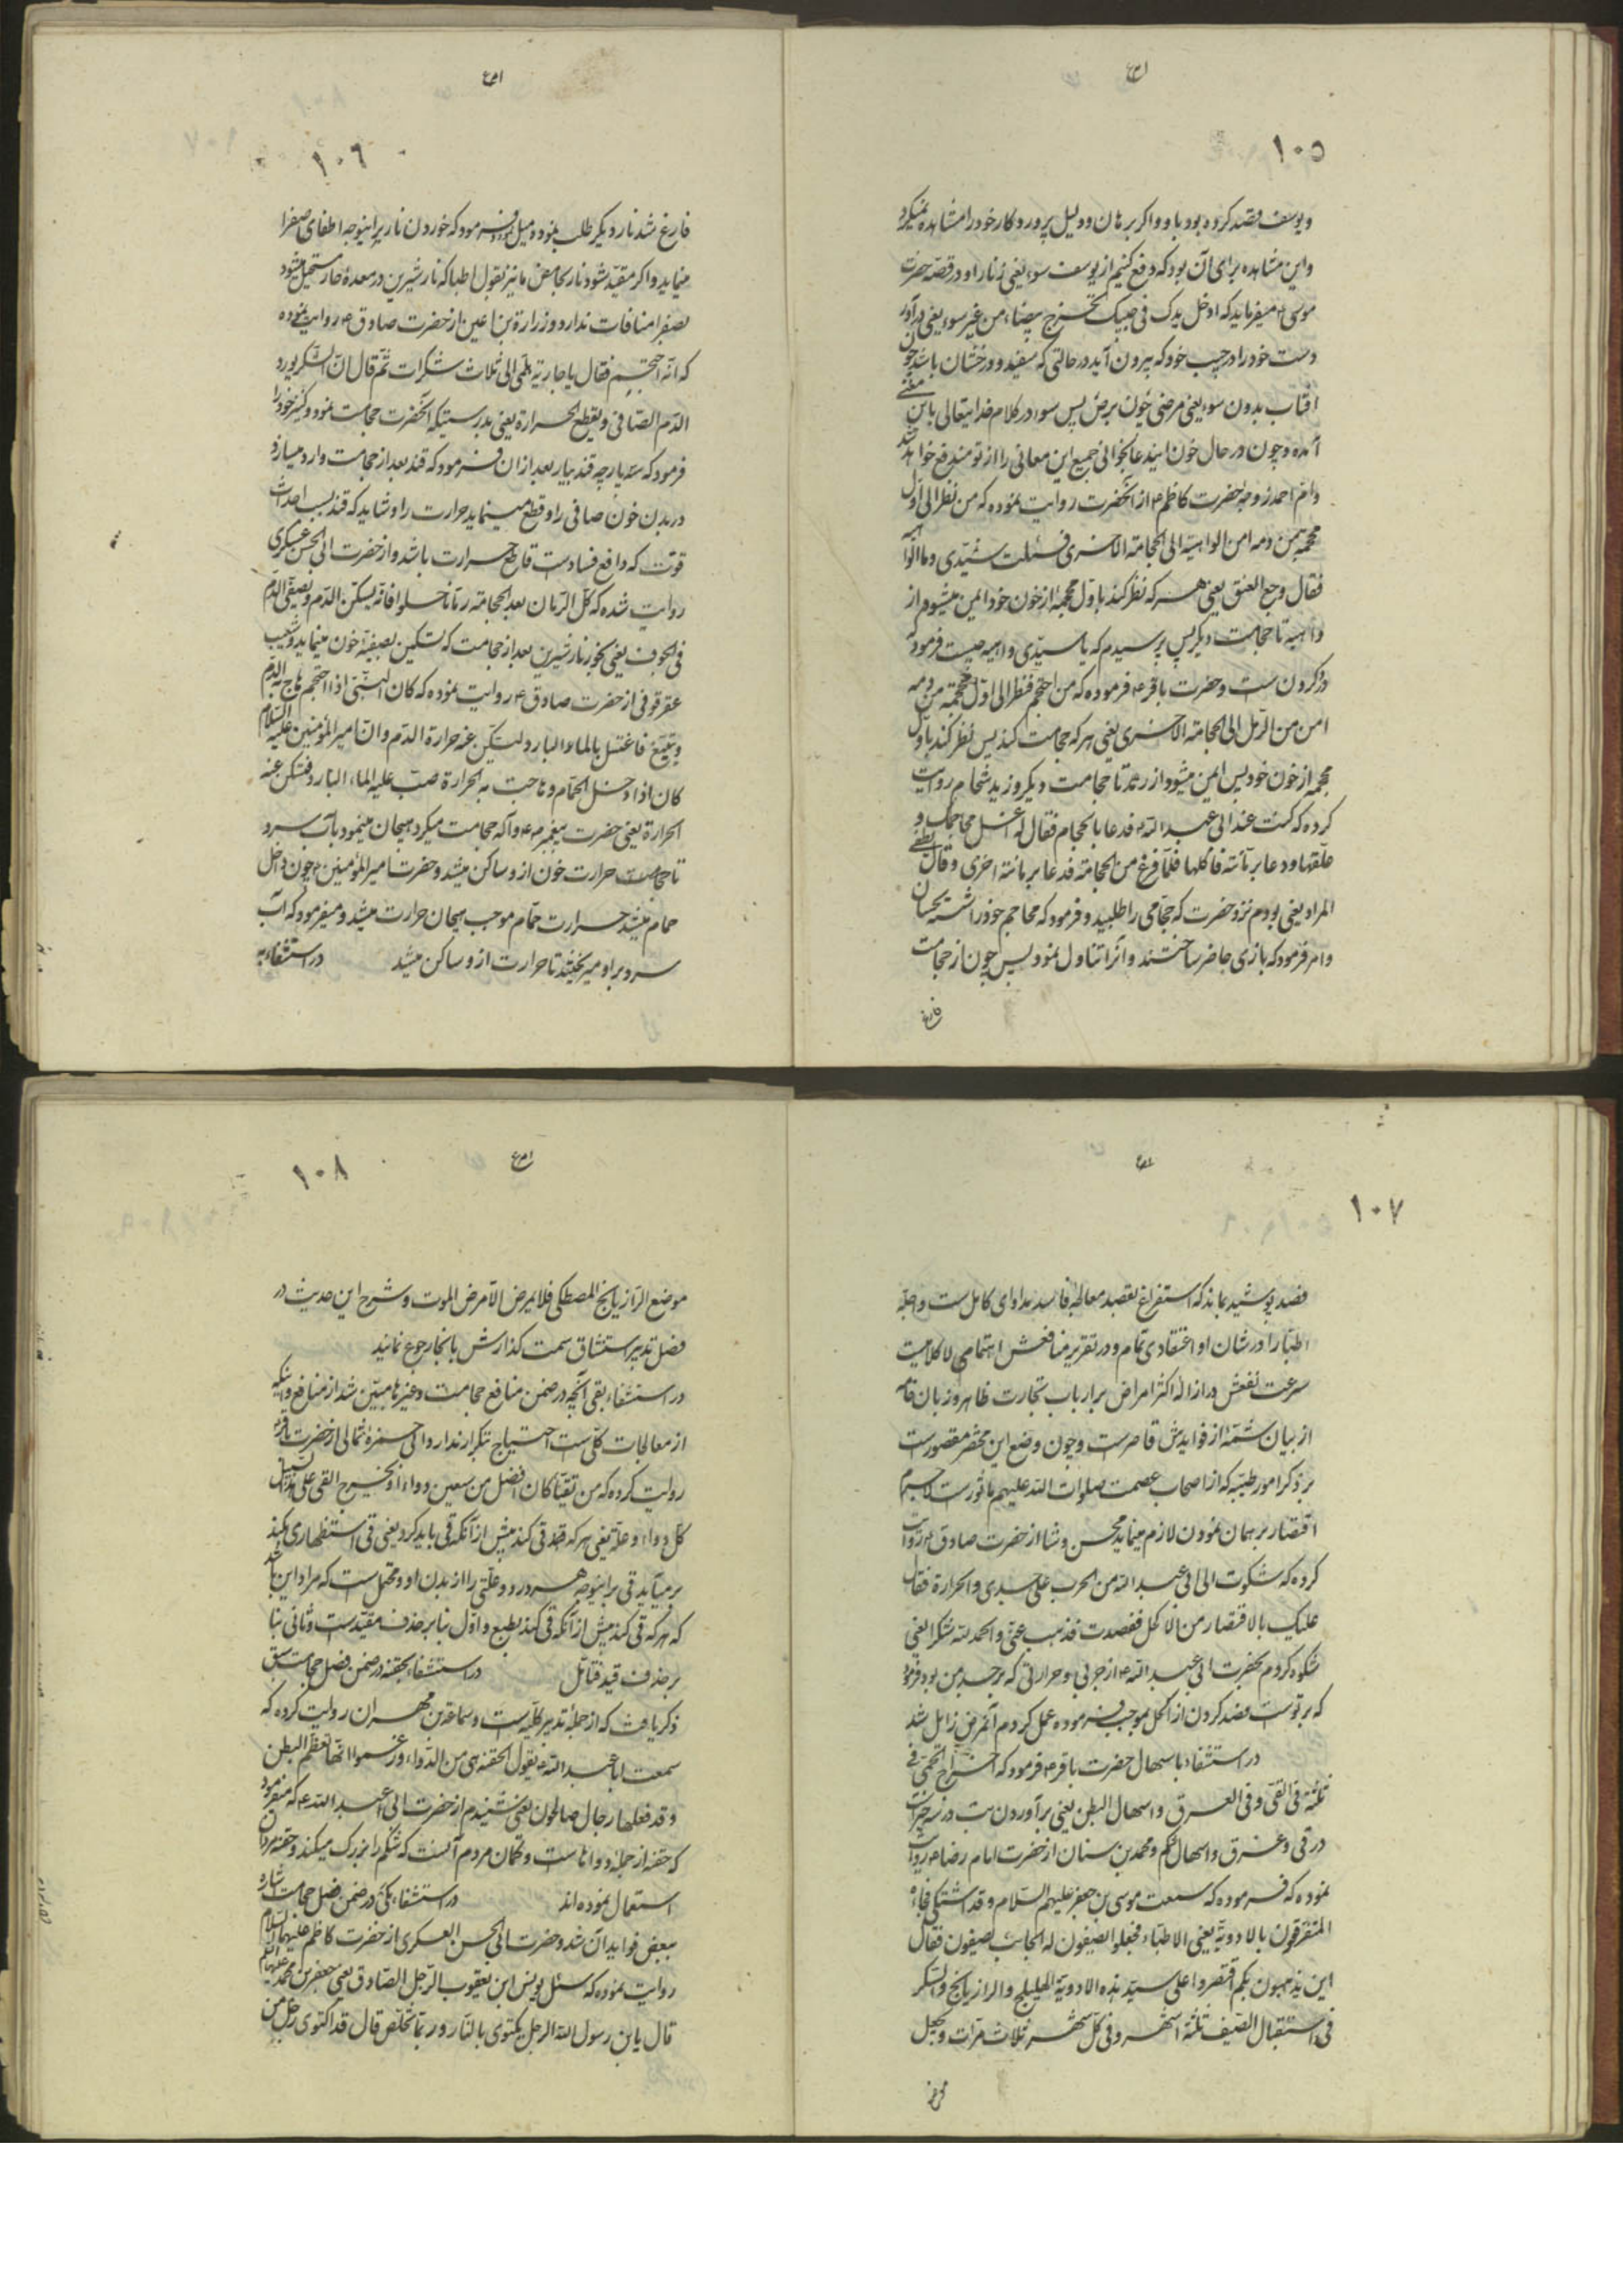 ۱۰۵
و یوسف قصد کرده بود باو و اگر برهان و دلیل پروردگار خود را مشاهده نمیکرد
و این مشاهده برای آن بود که دفع کنیم از یوسف سوء یعنی زنا را و در قصه حضرت
موسی ع میفرماید که ادخل یدک فی جیبک تخرج بیضاء من غیر سوء یعنی درآور
دست خود را در جیب خود که بیرون آید در حالتی که سفید و درخشان باشد چون
افتاب بدون سوء یعنی مرضی چون برص پس سوء در کلام خدایتعالی باین معنی
آمده و چون در حال خون ایندعا بخوانی جمیع این معانی را از تو مندفع خواهد شد
و ام احمد زوجه حضرت کاظم ع از آنحضرت روایت نموده که من نظر الی اول
محجمة من دمه امن الواهیة الی الحجامة الاخری فسئلت سیّدی و ما الواهیه
فقال وجع العنق یعنی هر که نظر کند باول محجمه از خون خود ایمن میشود از
واهیه تا حجامت دیگر پس پرسیدم که یا سیّدی واهیه چیست فرموده
درد گردن ست و حضرت باقر ع فرموده که من احتجم فنظر الی اول محجمة من دمه
امن من الرمل الی الحجامة الاخری یعنی هر که حجامت کند پس نظر کند باول
محجمه از خون خود پس ایمن میشود از رمد تا حجامت دیگر و زید شحام روایت
کرده که کنت عند ابی عبد الله ع فدعا بالحجام فقال له اغسل محاجمک و
علّقها و دعا برمّانة فاکلها فلمّا فرغ من الحجامة فدعا برمانة اخری و قال یطفی
المرار یعنی بودم نزد حضرت که حجّامی را طلبید و فرمود که محاجم خود را شسته بچسبان
و امر فرمود که اناری حاضر ساختند و آنرا تناول نمود پس چون از حجامت
فارغ
۱۰۶
فارغ شد نار دیگر طلب نموده میل فرمود که خوردن نار پراینوجه اطفای صفرا
مینماید و اگر مقیّد شود نار بحامض ما نیز بقول اطبا که نار شیرین در معدهٔ حار مستحیل میشود
بصفرا منافات ندارد و زرارة بن اعین از حضرت صادق ع روایت نموده
که انّه احتجم فقال یا جاریة هلمّی الیّ ثلاث سکرات ثم قال ان السکر یورد
الدم الصافی و یقطع الحرارة یعنی بدرستیکه آنحضرت حجامت نمود و کنیز خود را
فرمود که سه پارچه قند بیار بعد از ان فرمود که قند بعد از حجامت وارد میسازد
در بدن خون صافی را و قطع مینماید حرارت را و شاید که قند بسبب احداث
قوت که دافع فسادست قاطع حرارت باشد و از حضرت ابی الحسن عسکری
روایت شده که کل الرمان بعد الحجامة رمّانا حلوا فانه یسکن الدم و یصفی الدم
فی الجوف یعنی بخور نار شیرین بعد از حجامت که تسکین و تصفیه خون مینماید و شعیب
عقرقوفی از حضرت صادق ع روایت نموده که کان النبی اذا احتجم هاج به الدم
و تبیّغ فاغتسل بالماء البارد لیسکن عنه حرارة الدم و ان امیر المؤمنین علیه السلام
کان اذا دخل الحمّام و هاجت به الحرارة صب علیه الماء البارد فتسکن عنه
الحرارة یعنی حضرت پیغمبر ص و آله حجامت میکرد هیجان مینمود بآب سرد
حرارت خون از و ساکن میشد و حضرت امیر المؤمنین ع چون داخل
حمام میشد حرارت حمّام موجب هیجان حرارت میشد و میفرمود که آب
سرد بر او میریختند تا حرارت از و ساکن میشد در استشفاء به
۱۰۷
فصد پوشیده نماند که استفراغ بفصد معالجه فاسد مداوای کامل ست و اجلّه
اطبّا را در شان او اعتقادی تمام و در تقریر منافعش اهتمامی لا کلام ست
سرعت نفعش در ازالهٔ اکثر امراض بر ارباب تجارت ظاهر و زبان خامه
از بیان شمّه از فوایدش قاصرست و چون وضع این مختصر مقصورست
بر ذکر امور طبیّه که از اصحاب عصمت صلوات الله علیهم ماثورست لاجرم
اقتصار بر همان نمودن لازم مینماید محسن وشا از حضرت صادق ع روایت
کرده که شکوت الی ابی عبد الله من الجرب علی جسدی و الحرارة فقال
علیک بالاقتصار من الاکحل ففصدت فذهب عنّی و الحمد لله شکرا یعنی
شکوه کردم بحضرت ابی عبد الله ع از جربی و حرارتی که بر جسد من بود فرمود
که بر توست فصد کردن از اکحل بموجب فرموده عمل کردم آنمرض زایل شد
در استشفاء باسهال حضرت باقر ع فرمود که اخراج الحمّی فی
ثلثة فی القیّ و فی العرق و اسهال البطن یعنی برآوردن تب در سه چیزست
در قی و عرق و اسهال شکم و محمد بن سنان از حضرت امام رضا ع روایت
نموده که فرموده که سمعت موسی بن جعفر علیهم السلام و قد اشتکی فجاءه
المترفقون بالادویة یعنی الاطبّاء فجعلوا یصفون له العجائب یصفون فقال
این یذهبون بکم اقتصروا علی سیّد هذه الادویة الهلیلج و الرازیانج و السکر
فی استقبال الصیف ثلثة اشهر و فی کل شهر ثلاث مرّات و یجعل
موضع
۱۰۸
موضع الرازیانج المصطکی فلا یمرض الا مرض الموت و شرح این حدیث در
فصل تدبیر استنشاق سمت گذارش یا بانجا رجوع نمایند
در استشفاء بقی آنچه در ضمن منافع حجامت و غیرها مبیّن شد از منافع و اینکه
از معالجات کلّی ست احتیاج بتکرار ندارد ابی حمزهٔ ثمالی از حضرت باقر ع
روایت کرده که من تقیّا کان افضل من سبعین دواء و یخرج القی علی هذا السبیل
کل داء و علة یعنی هر که قی کند پیش از آنکه قی باید کرد یعنی قی استظهاری بکند
برمیآید قی براینوجه هر درد و علّتی را از بدن او و محتمل ست که مراد این باشد
که هر که قی کند پیش از آنکه قی کند بطبع و اوّل بنابر حذف مقیّدست و ثانی بنا
بر حذف قید فتامّل در استشفاء بحقنه در ضمن فصل حجامت سبق
ذکر یافت که از جملهٔ تدبیر کلّیه ست و سماعة بن مهران روایت کرده که
سمعت ابا عبد الله ع یقول الحقنة هی من الدواء و زعموا انها تعظم البطن
و قد فعلها رجال صالحون یعنی شنیدم از حضرت ابی عبد الله ع که میفرمود
که حقنه از جملهٔ دواهاست و گمان مردم آنست که شکم را بزرگ میکند و حقنه مردان
استعمال نموده اند در استشفاء بکی در ضمن فصل حجامت اشاره
ببعض فواید آن شد و حضرت ابی الحسن العسکری از حضرت کاظم علیهما السلام
روایت نموده که سئل یونس ابن یعقوب الرجل الصادق یعنی جعفر بن محمد علیهما السلام
قال یابن رسول الله الرجل یکتوی بالنار و ربما تخلّص قال قد اکتوی رجل من